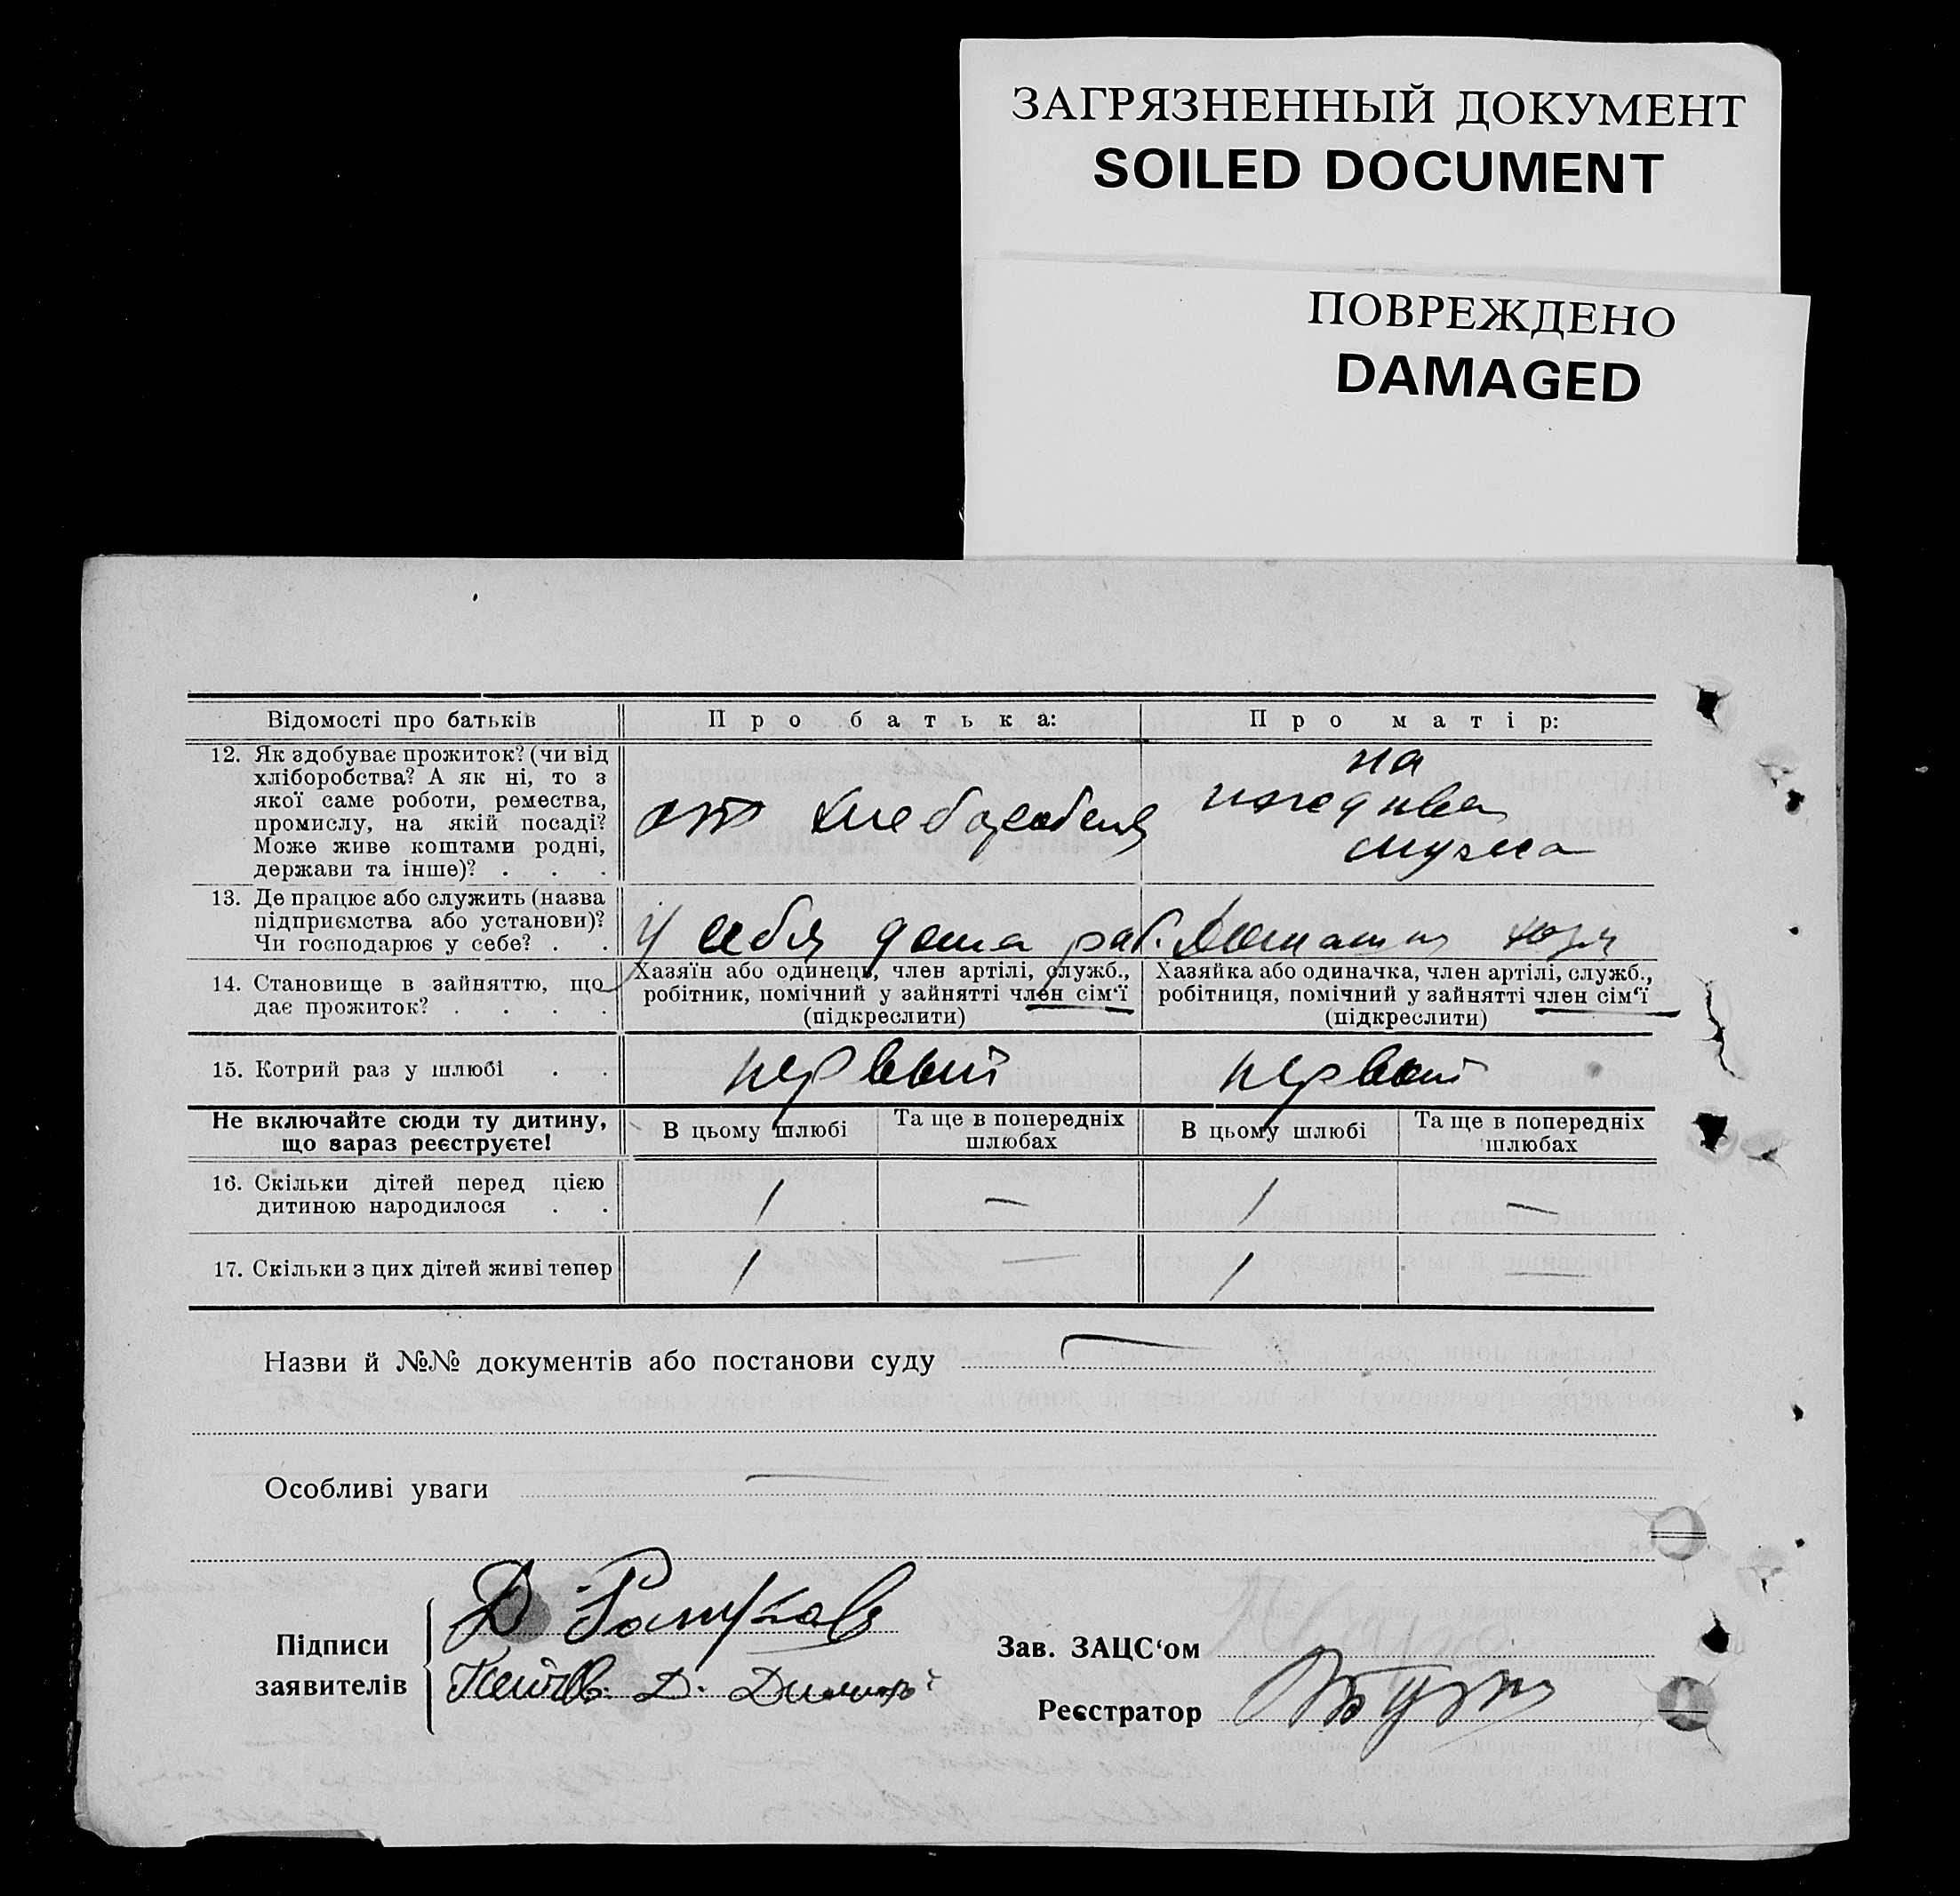 ЗАГРЯЗНЕННЫЙ ДОКУМЕНТ
SOILED DOCUMENT
ПОВРЕЖДЕНО
DAMAGED
Відомості про батьків
Про батька:
Про матір:
12. Як здобуває прожиток? (чи від
хліборобства? А як ні, то з
якої саме роботи, ремества,
промислу, на якій посаді?
Може живе коштами родні,
держави та інше)? . . .
от
на
мужа
13. Де працює або служить (назва
підприємства або установи)?
Чи господарює у себе? . .
У себя дома раб.
14. Становище в зайняттю, що
дає прожиток? . . . .
Хазяїн або одинець, член артілі, служб.,
робітник, помічний у зайнятті член сім‘ї
(підкреслити)
Хазяйка або одиначка, член артілі, служб.,
робітниця, помічний у зайнятті член сім‘ї
(підкреслити)
15. Котрий раз у шлюбі . .
первый
первый
Не включайте сюди ту дитину,
що зараз реєструєте!
В цьому шлюбі
Та ще в попередніх
шлюбах
В цьому шлюбі
Та ще в попередніх
шлюбах
16. Скільки дітей перед цією
дитиною народилося . .
1
—
1
—
17. Скільки з цих дітей живі тепер
1
—
1
—
Назви й №№ документів або постанови суду
Особливі уваги
Підписи
заявителів
Д
Д.
Зав. ЗАЦС‘ом
Реєстратор